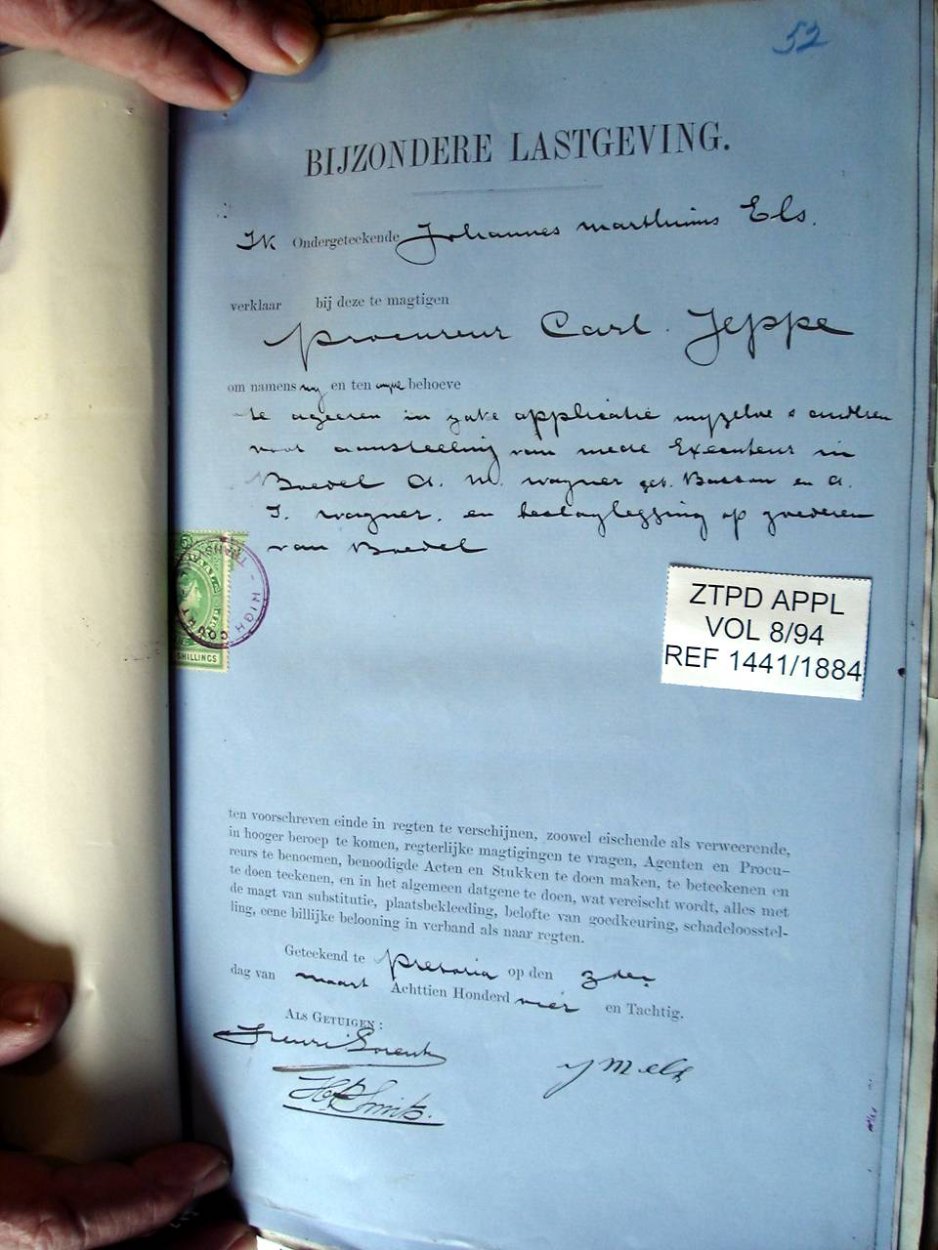 52
BIJZONDERE LASTGEVING.
Ik Ondergeteekende Johannes Marthinus Els.
verklaar bij deze te magtigen
Procureur Carl Jeppe
om namens my en ten myne behoeve
te ageeren in zake applicatie myzelve & anderen
voor aanstelling van mede Executeur in
Boedel A. M. Wagner geb. Basson en A.
J. Wagner. en beslaglegging op goederen
van Boedel
HIGH COURT
SHILLINGS
ZTPD APPL
VOL 8/94
REF 1441/1884
ten voorschreven einde in regten te verschijnen, zoowel eischende als verweerende,
in hooger beroep te komen, regterlijke magtigingen te vragen, Agenten en Procu-
reurs te benoemen, benoodigde Acten en Stukken te doen maken, te beteekenen en
te doen teekenen, en in het algemeen datgene te doen, wat vereischt wordt, alles met
de magt van substitutie, plaatsbekleeding, belofte van goedkeuring, schadeloosstel-
ling, eene billijke belooning in verband als naar regten.
Geteekend te Pretoria op den 3den
dag van Maart Achttien Honderd vier en Tachtig.
ALS GETUIGEN:
J M els
Smits